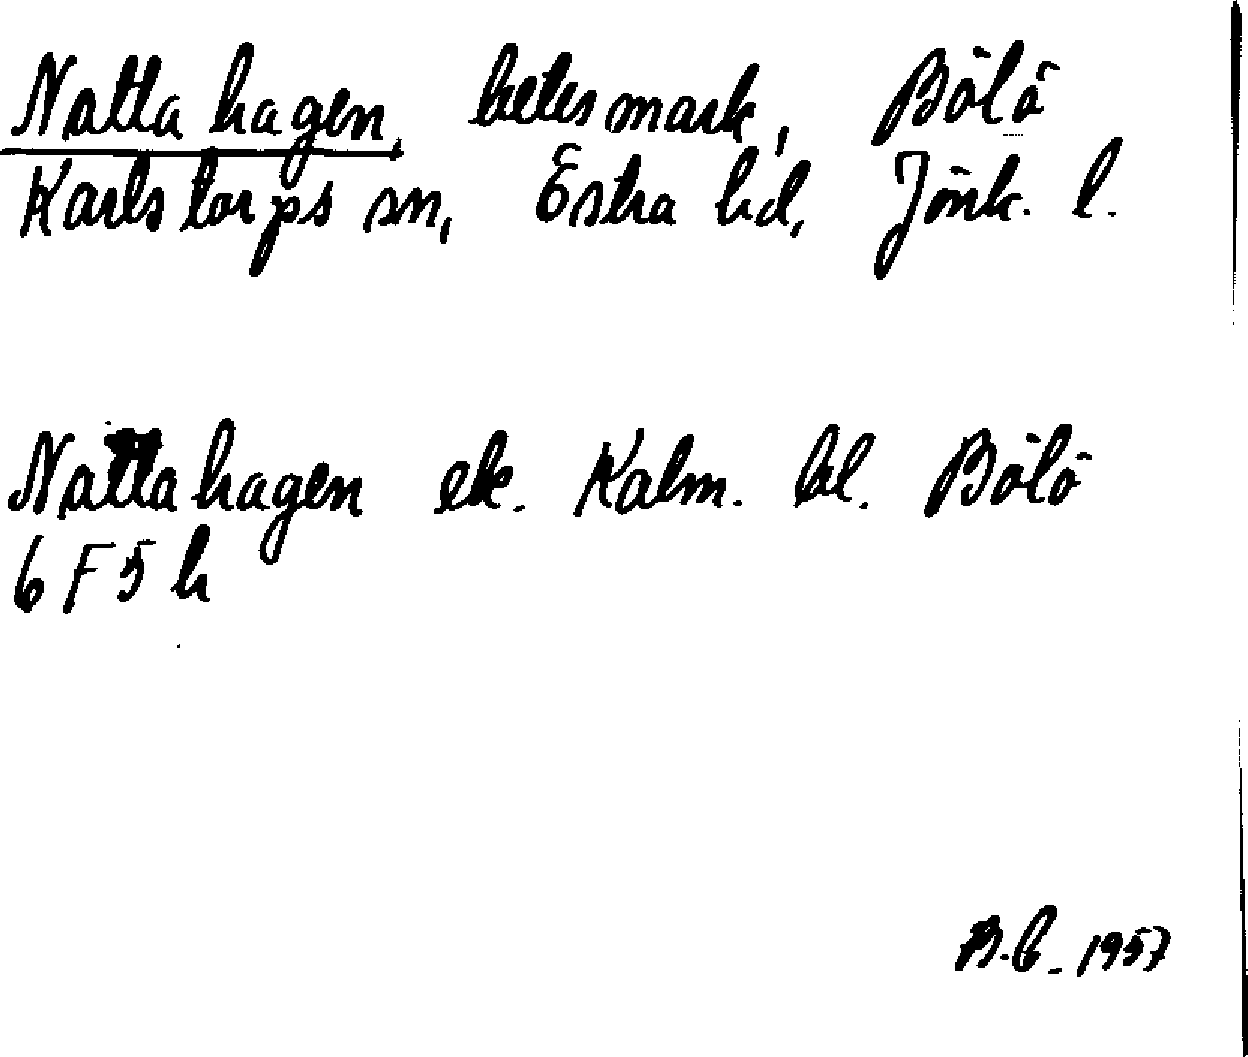 Nattahagen, betesmark, Bölö
Karlstorps sn, Östra hd, Jönk. l.
Nattahagen ek. Kalm. bl. Bölö
6 F 5 h
B.C. 1957